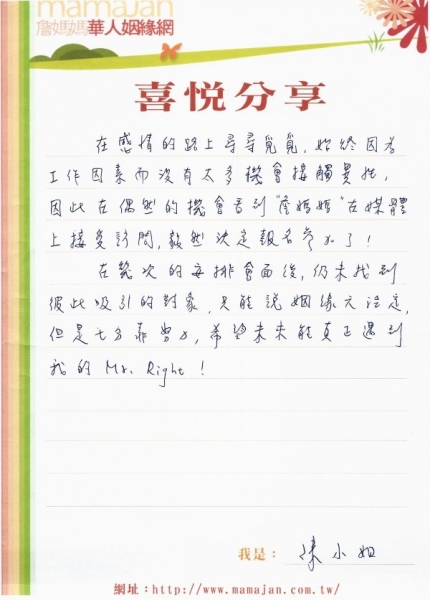 mamajan
詹媽媽華人姻緣網
喜悦分享
在感情的路上尋尋覓覓，始終因為
工作因素而沒有太多機會接觸異性，
因此在偶然的機會看到"詹媽媽"在媒體
上接受訪問，毅然決定報名參加了！
在幾次的安排會面後，仍未找到
彼此吸引的對象，只能說姻緣天註定，
但是七分靠努力，希望未來能真正遇到
我的 Mr. Right！
我是： 陳小姐
網址：http://www.mamajan.com.tw/